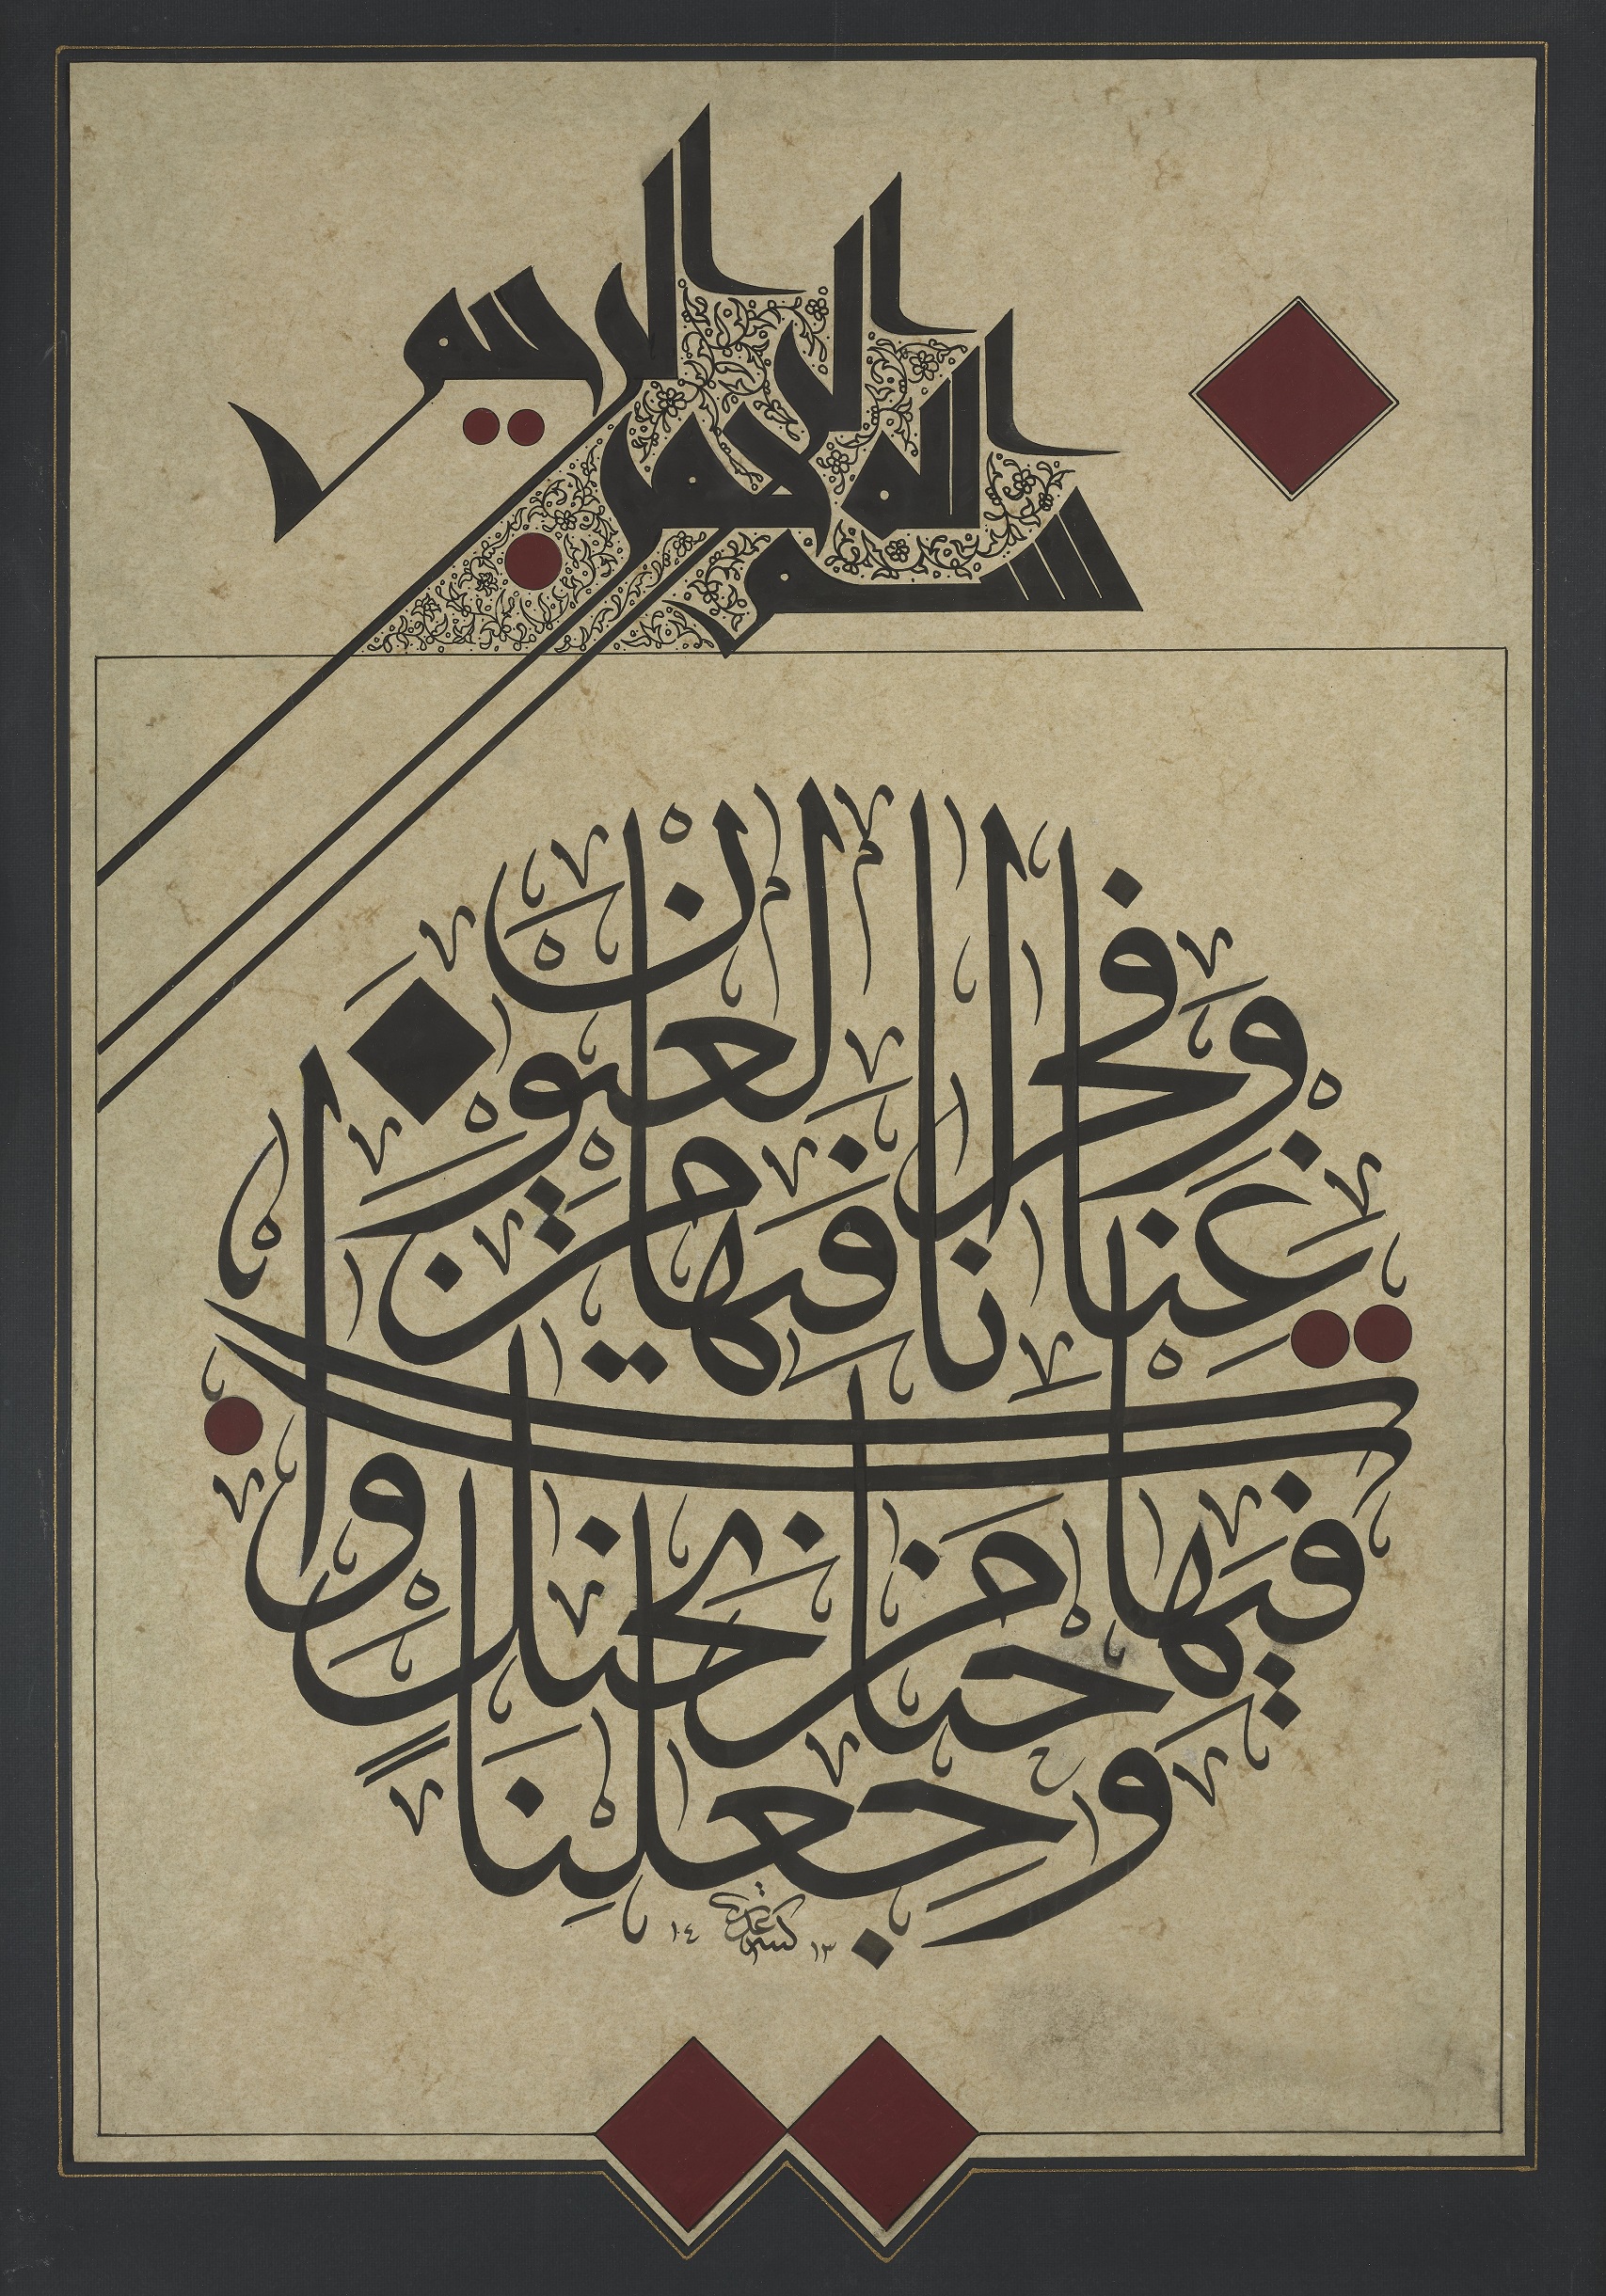 بسم الله الرحمن الرحيم
وجعلنا فيها جنات من نخيل وأعناب وفجرنا فيها من العيون
١٤ ١٣